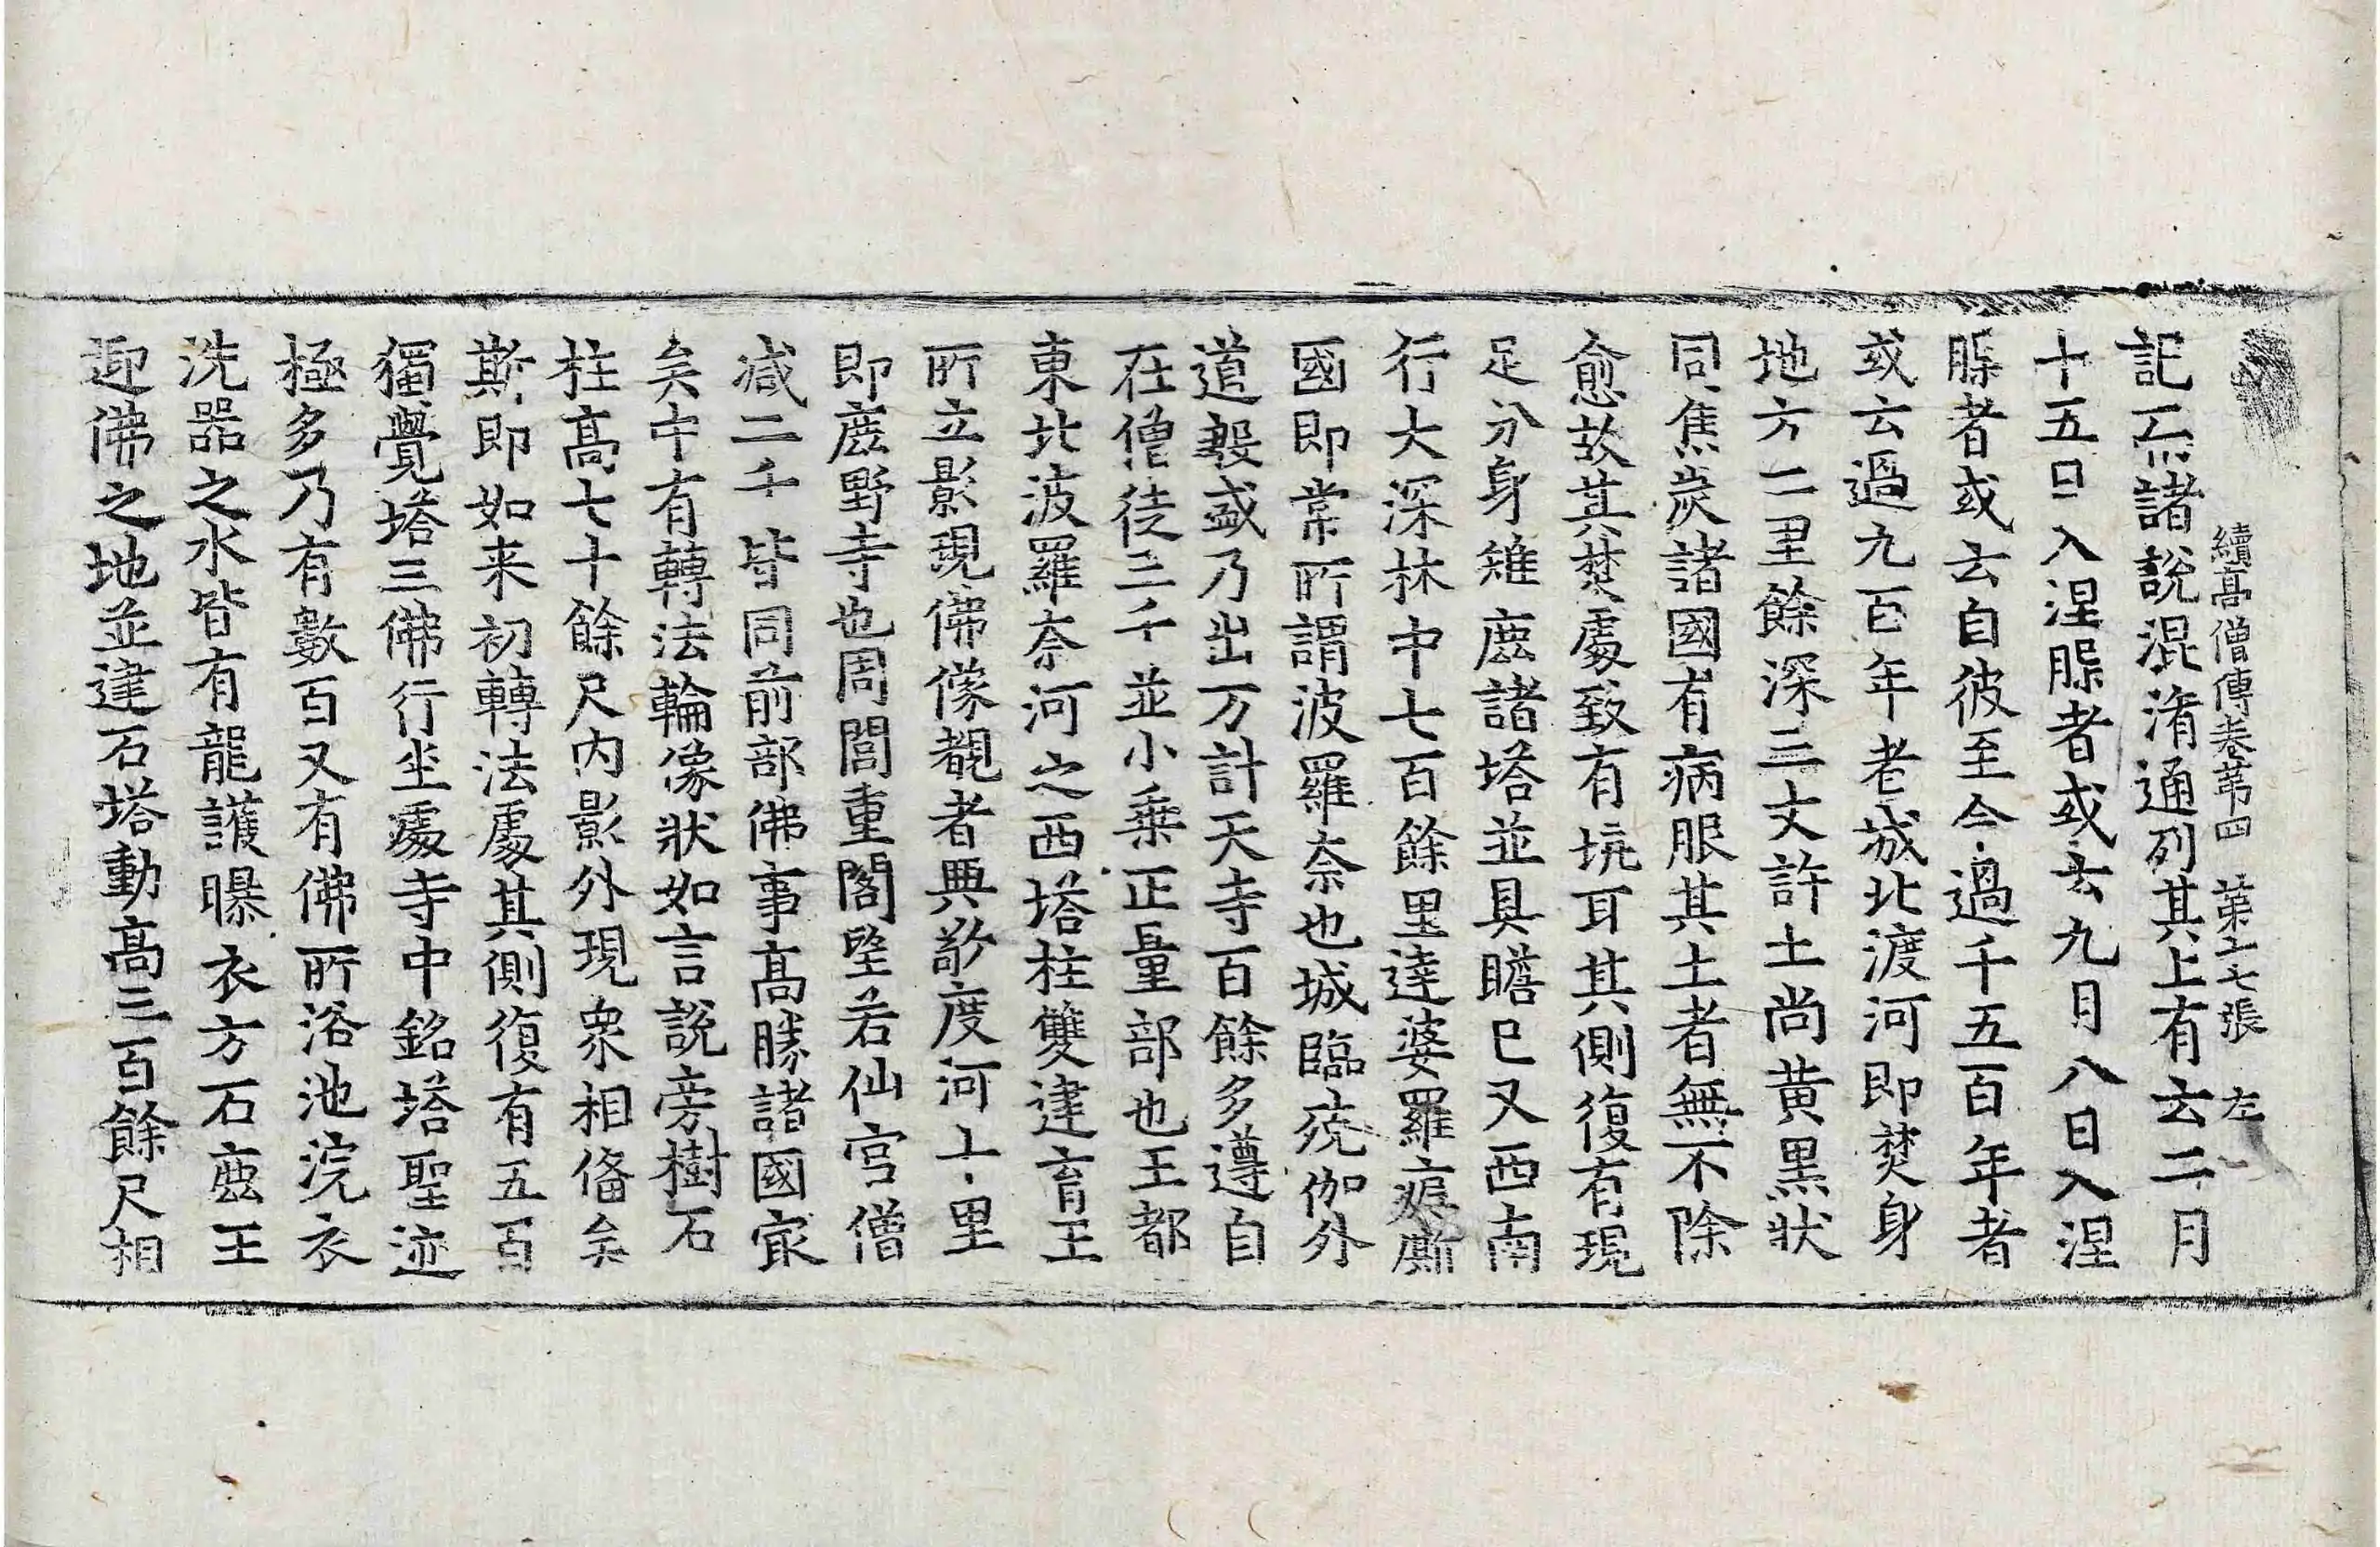 續高僧傳卷苐四　第十七張　左
記不諸說混淆通列其上有云二月
十五日入涅槃者或云九月八日入涅
槃者或云自彼至今過千五百年者
或云過九百年者城北渡河即焚身
地方二里餘深三丈許土尚黃黑狀
同焦炭諸國有病服其土者無不除
愈故其焚處致有坑耳其側復有現
足分身雉鹿諸塔並具瞻已又西南
行大深林中七百餘里達婆羅痆廝
國即常所謂波羅奈也城臨殑伽外
道殷盛乃出万計天寺百餘多遵自
在僧徒三千並小乗正量部也王都
東北波羅奈河之西塔柱雙建育王
所立影現佛像覩者興敬度河十里
即鹿野寺也周閭重閣望若仙宮僧
减二千皆同前部佛事高勝諸國㝡
矣中有轉法輪像狀如言說旁樹石
柱高七十餘尺内影外現衆相俻矣
斯即如来初轉法處其側復有五百
獨覺塔三佛行坐處寺中銘塔聖迹
極多乃有數百又有佛所浴池浣衣
洗器之水皆有龍護曝衣方石鹿王
迎佛之地並建石塔動高三百餘尺相